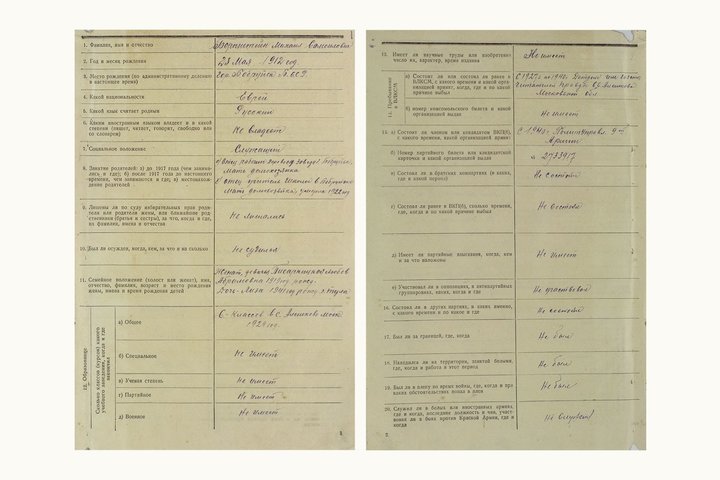 1. Фамилия, имя и отчество
Михаил Самойлович
2. Год и месяц рождения
23 Мая 1912 год
3. Место рождения (по административному делению
в настоящее время)
4. Какой национальности
Еврей
5. Какой язык считает родным
Русский
6. Каким иностранным языком владеет и в какой
степени (пишет, читает, говорит, свободно или
со словарем)
Не владеет
7. Социальное положение
Служащий
8. Занятие родителей: а) до 1917 года (чем занима-
лись и где); б) после 1917 года до настоящего
времени, чем занимаются и где; в) местонахож-
дение родителей
мать домохозяйка
мать домохозяйка, умерла 1922 году
9. Лишены ли по суду избирательных прав роди-
тели или родители жены, или ближайшие род-
ственники (братья и сестры), за что, когда и где,
их фамилия, имя и отчество
Не лишались
10. Был ли осужден, когда, кем, за что и на сколько
Не судился
11. Семейное положение (холост или женат), имя,
отчество, фамилия, возраст и место рождения
жены, имена и время рождения детей
Женат,
12. Образование
Сколько классов (курсов) какого
учебного заведения, когда и где
закончил
а) Общее
6-Классов
1929 год.
б) Специальное
Не имеет
в) Ученая степень
Не имеет
г) Партийное
Не имеет
д) Военное
Не имеет
13. Имеет ли научные труды или изобретения:
число их, характер, время издания
Не имеет
14. Пребывание
в ВЛКСМ
а) Состоит ли или состоял ли ранее в
ВЛКСМ, с какого времени и какой орга-
низацией принят, когда, где и по какой
причине выбыл
Московская обл
б) номер комсомольского билета и какой
организацией выдан
Не имеет
15. а) Состоит ли членом или кандидатом ВКП(б),
с какого времени, какой организацией принят
б) Номер партийного билета или кандидатской
карточки и какой организацией выдан
в) Состоял ли в братских компартиях (в каких,
где и какой период)
Не состоял
г) Состоял ли ранее в ВКП(б), сколько времени,
где, когда и по какой причине выбыл
Не состоял
д) Имеет ли партийные взыскания, когда, кем
и за что наложены
Не имеет
е) Участвовал ли в оппозиции, в антипартийных
группировках, каких, когда и где
Не участвовал
16. Состоял ли в других партиях, в каких именно,
с какого времени и по какое и где
Не состоял
17. Был ли за границей, где, когда
Не был
18. Находился ли на территории, занятой белыми,
где, когда и работа в этот период
Не был
19. Был ли в плену во время войны, где, когда и при
каких обстоятельствах попал в плен
Не был
20. Служил ли в белых или иностранных армиях,
где и когда, последняя должность и чин, участ-
вовал ли в боях против Красной Армии, где и
когда
Не служил
2